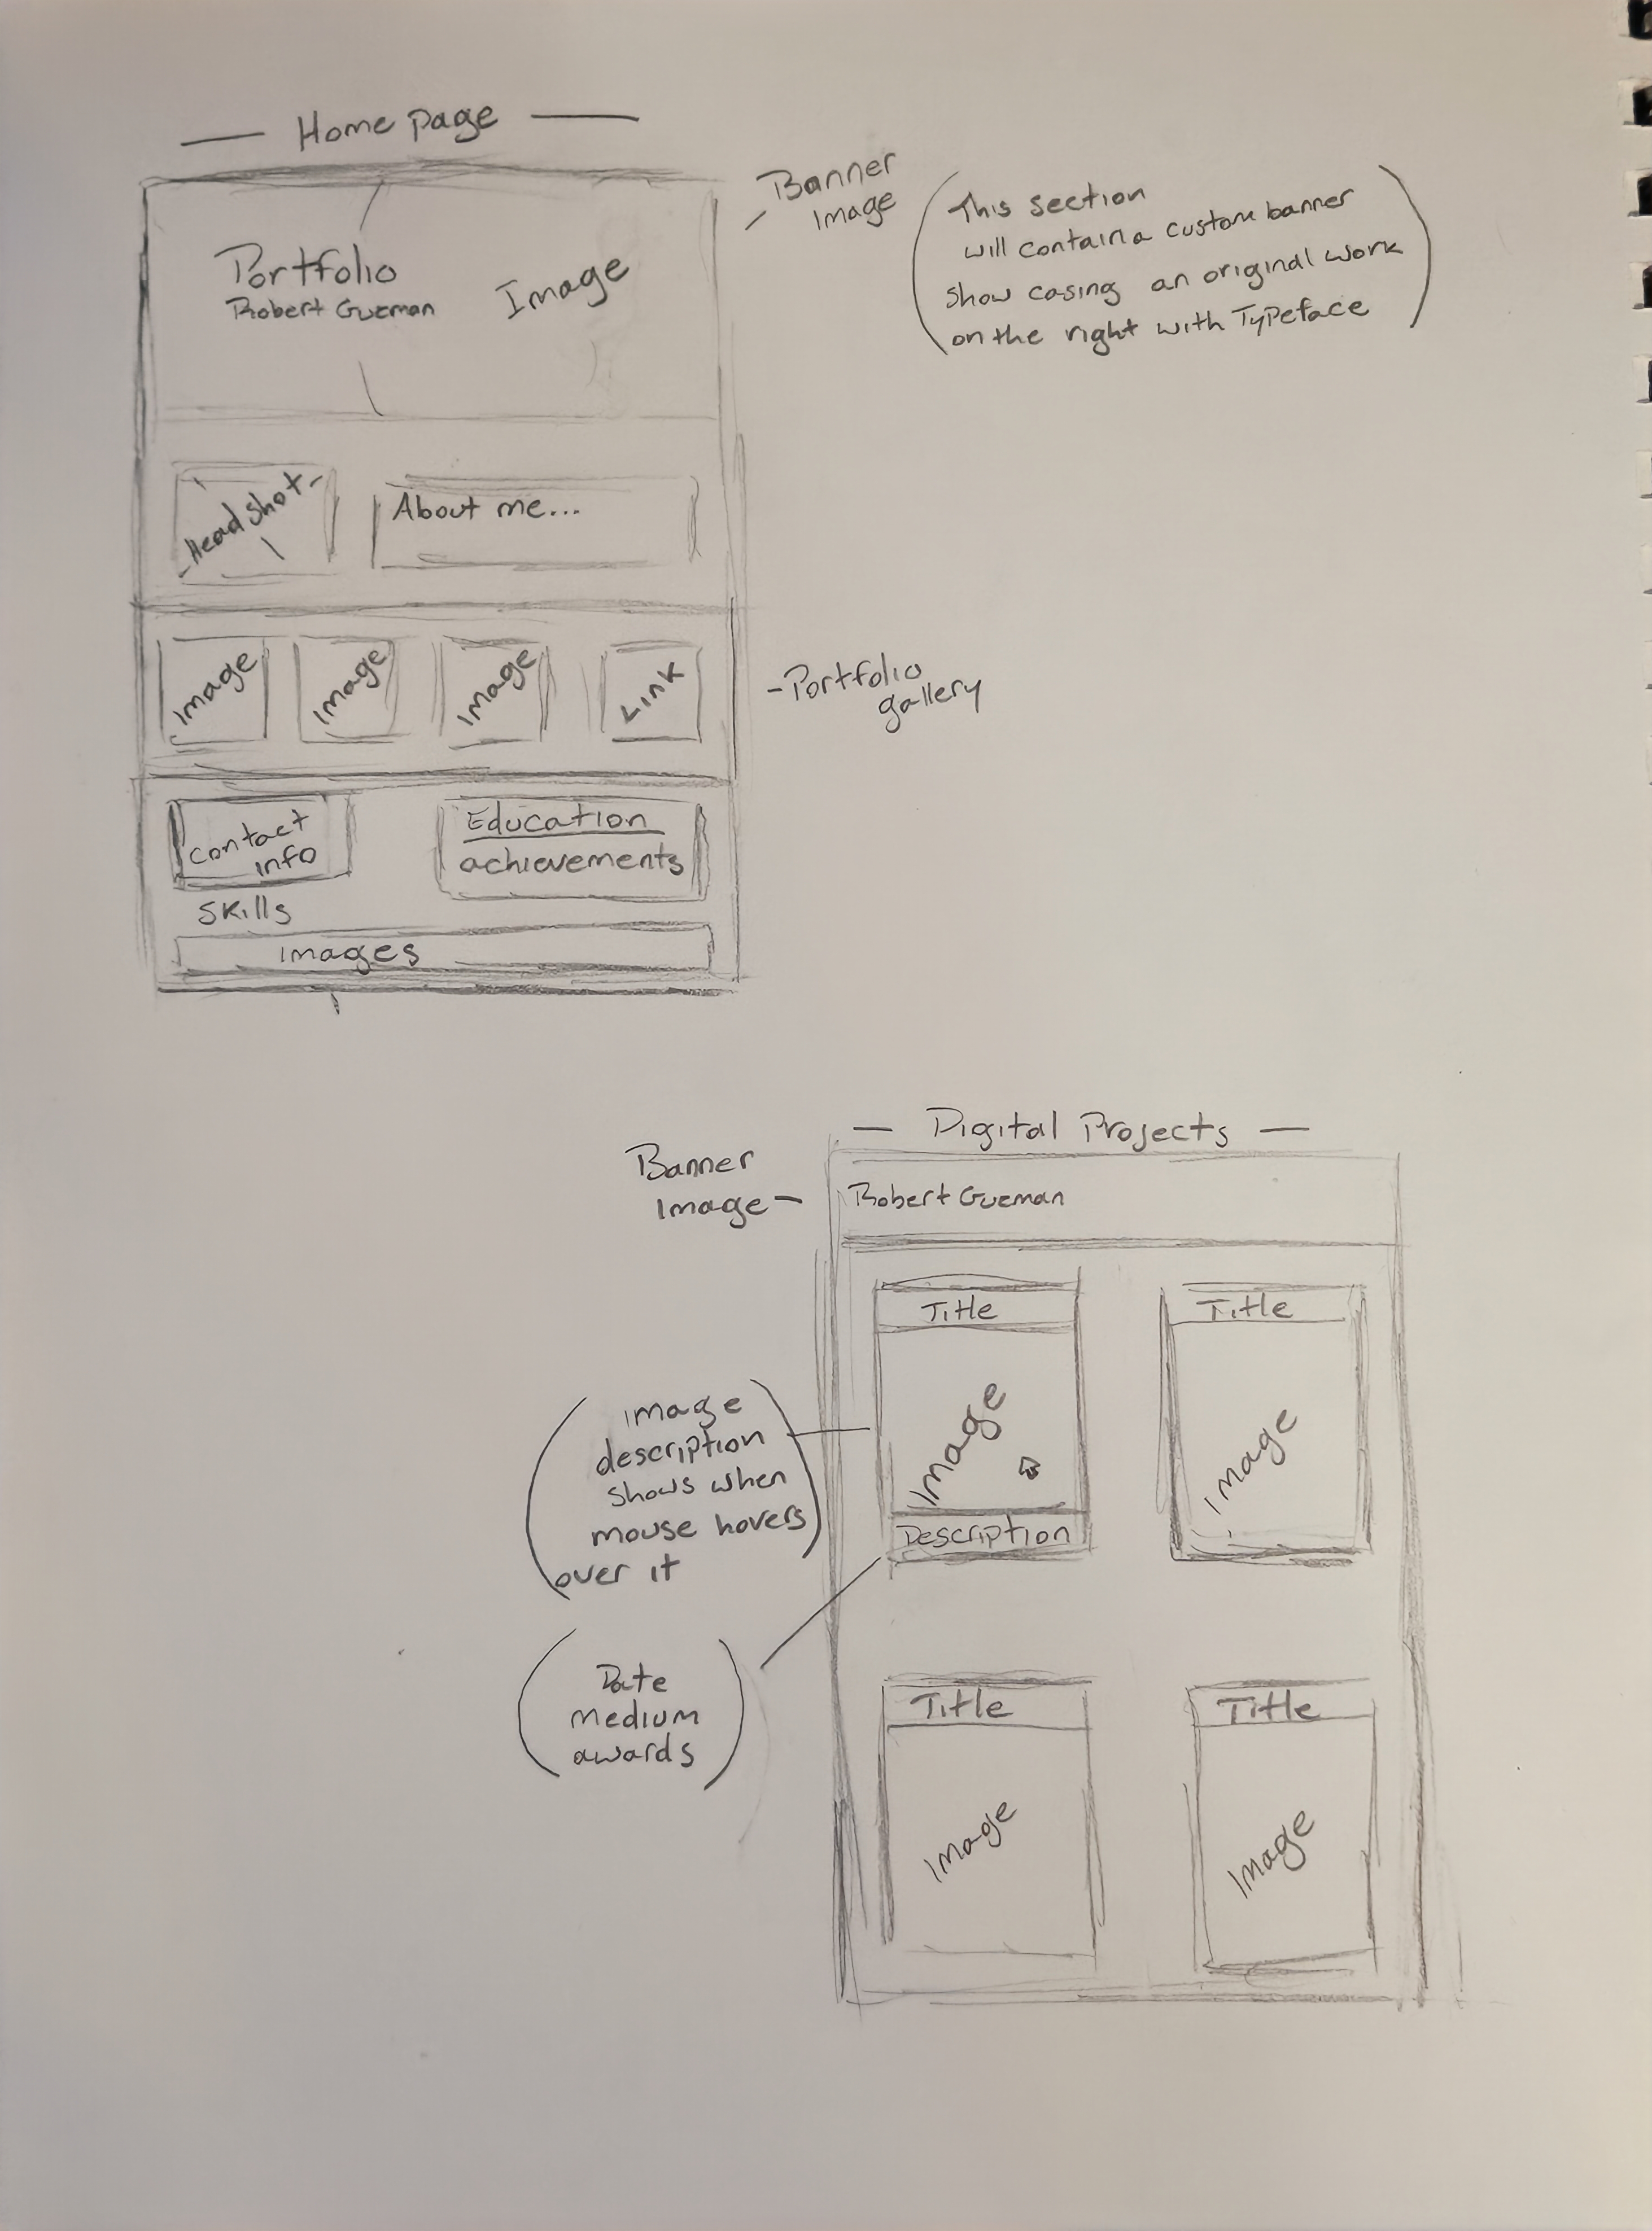 — Home Page —
Banner
Image
(This section
will contain a custom banner
show casing an original work
on the right with Typeface)
Portfolio
Robert Guzman
Image
-Headshot-
About me...
Image
Image
Image
Link
-Portfolio
gallery
Contact
info
Education
achievements
Skills
Images
— Digital Projects —
Banner
Image -
Robert Guzman
Title
Title
Image
Image
Description
(image
description
shows when
mouse hovers
over it)
(Date
medium
awards)
Title
Title
Image
Image